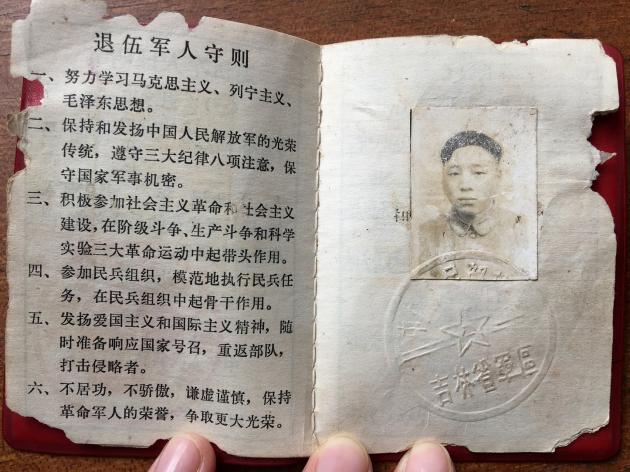 退伍军人守则
一、努力学习马克思主义、列宁主义、
毛泽东思想。
二、保持和发扬中国人民解放军的光荣
传统，遵守三大纪律八项注意，保
守国家军事机密。
三、积极参加社会主义革命和社会主义
建设，在阶级斗争、生产斗争和科学
实验三大革命运动中起带头作用。
四、参加民兵组织，模范地执行民兵任
务，在民兵组织中起骨干作用。
五、发扬爱国主义和国际主义精神，随
时准备响应国家号召，重返部队，
打击侵略者。
六、不居功，不骄傲，谦虚谨慎，保持
革命军人的荣誉，争取更大光荣。
吉林省軍區